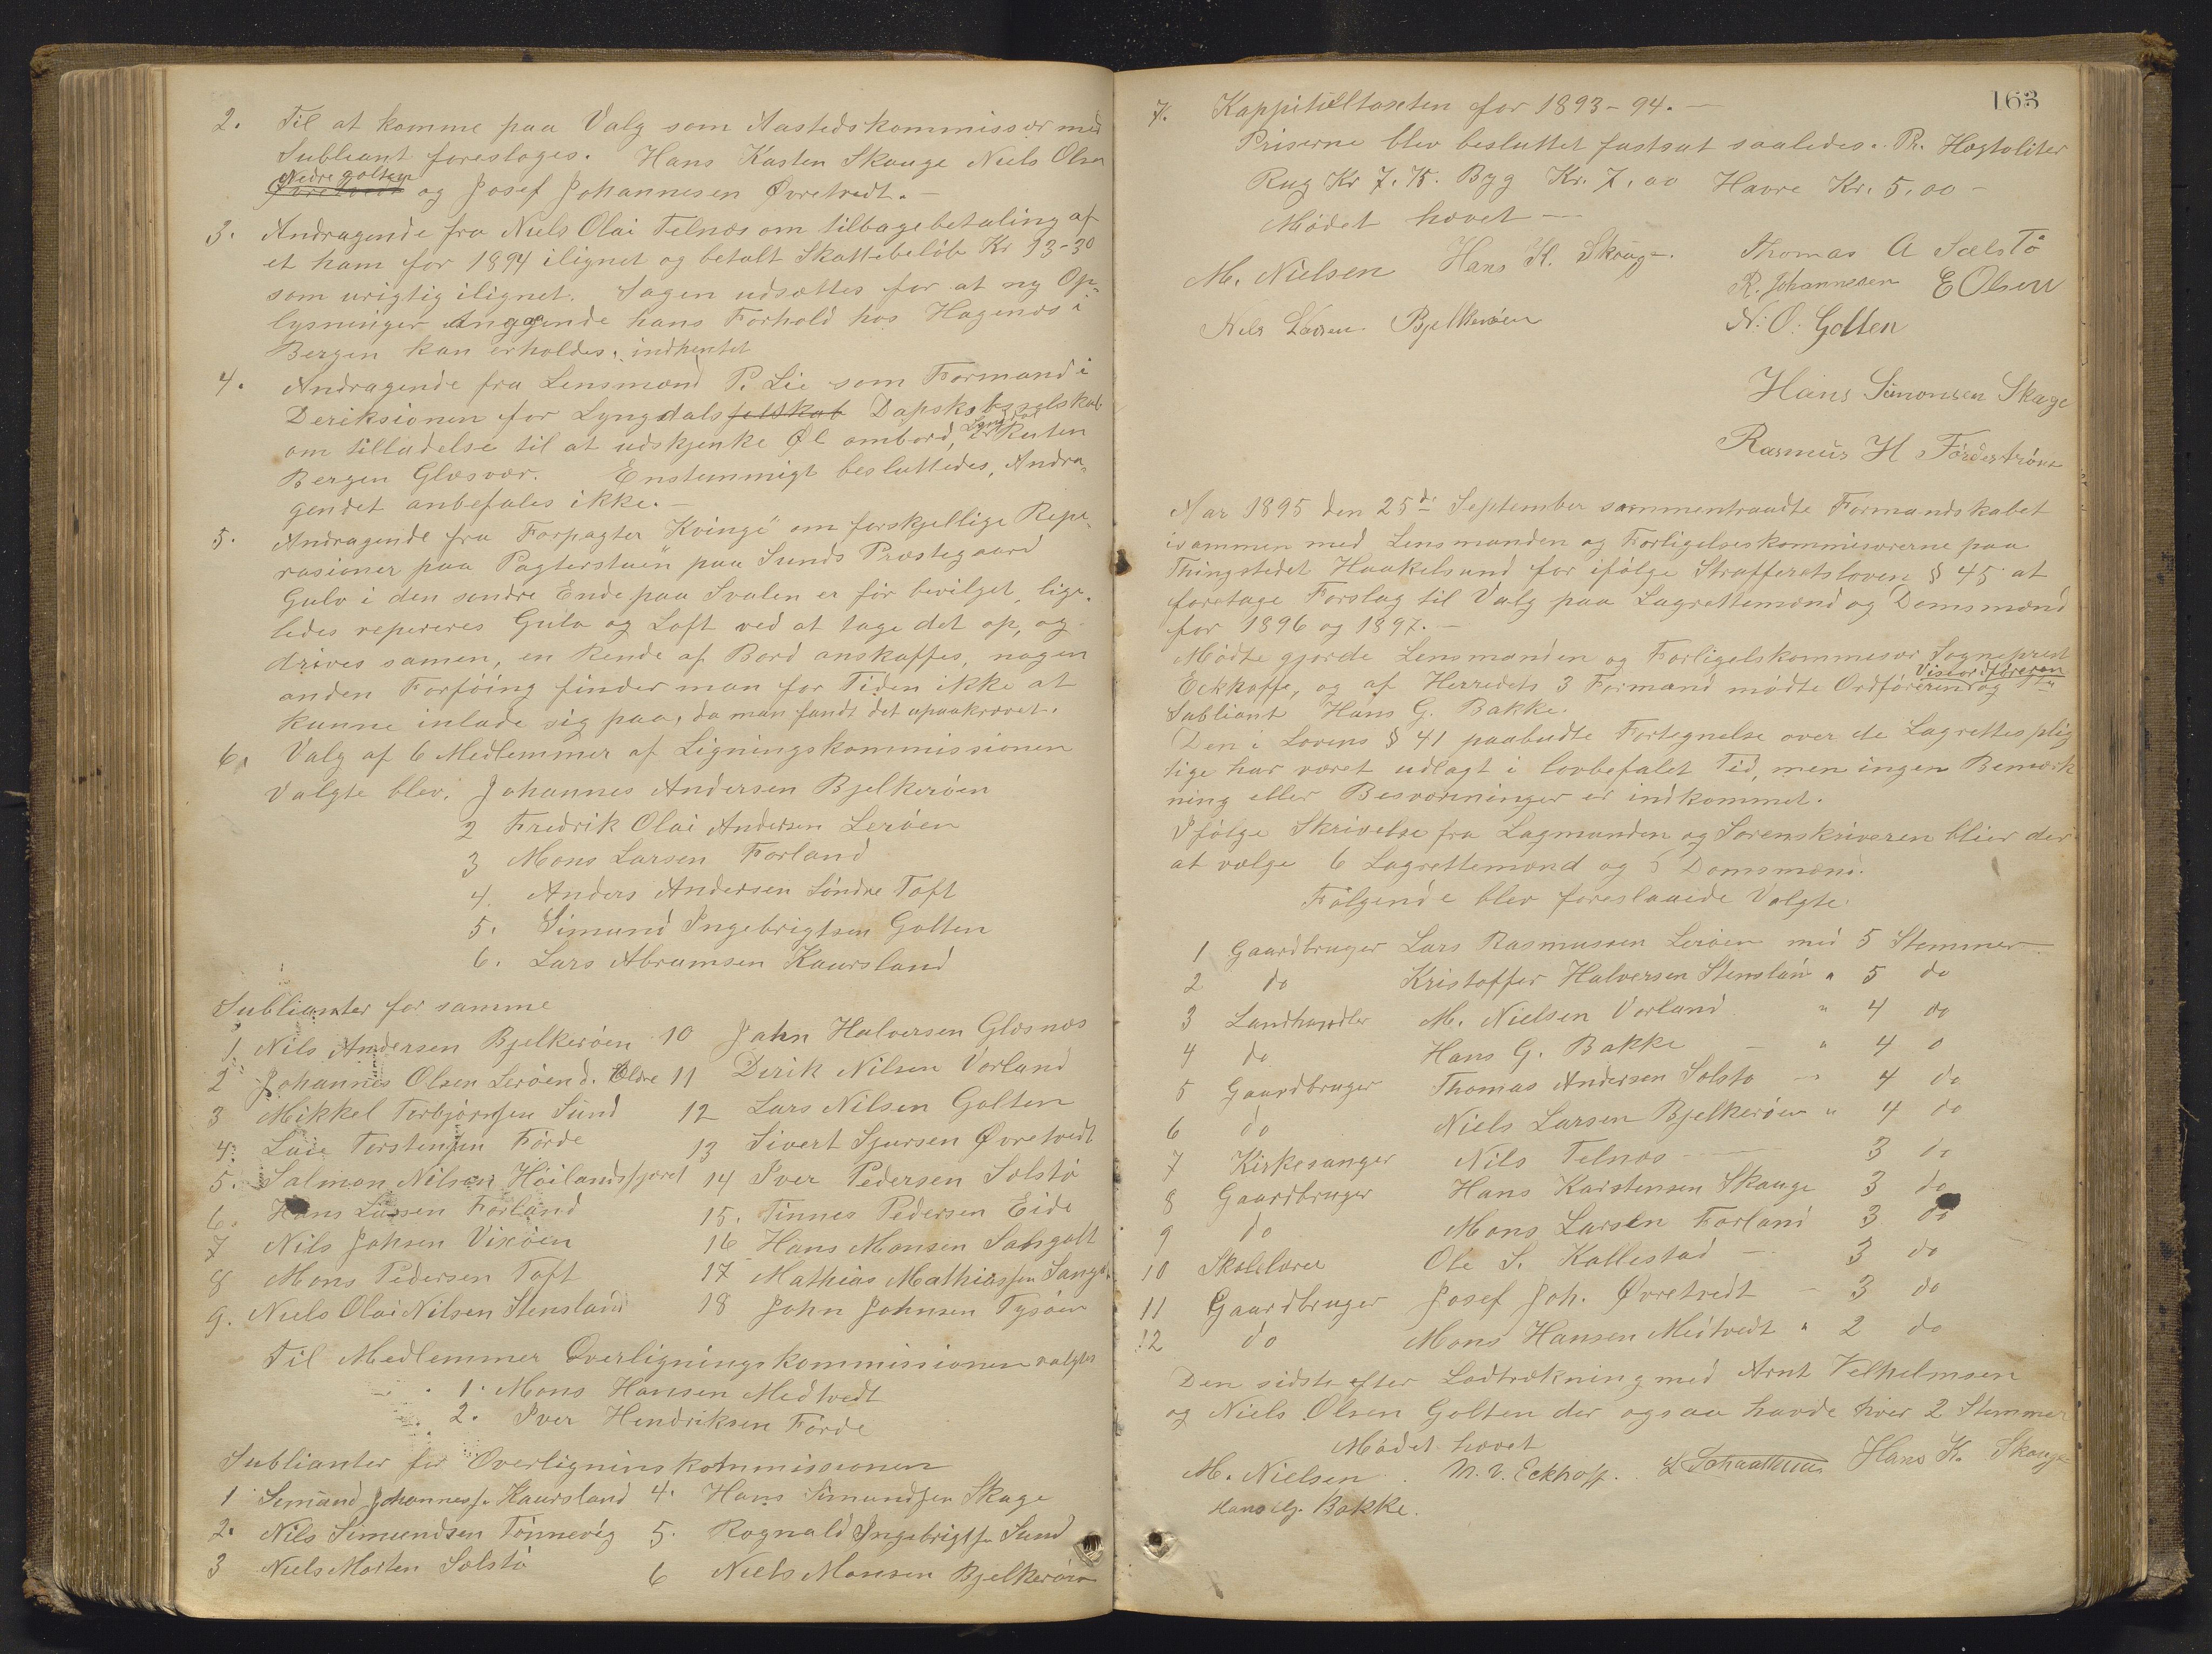 2. Til at komme paa Valg som Aastedskommissær med
Subliant foresloges. Hans Kasten Skauge Niels Olsen
Nedre golten
og Josef Johannesen Øvretvedt. —
3. Andragende fra Niels Olai Telnæs om tilbagebetaling af
et ham for 1894 ilignet og betalt Skattebeløb Kr 13-30
som urigtig ilignet. Sagen udsættes for at ny Op-
lysninger Angaaende hans Forhold hos Hagenæs i
Bergen kan erholdes. indhentet
4. Andragende fra Lensmand P. Lie som Formand i
Dereksionen for Lyngdals felskab Dapskibsselskab
om tilladelse til at udskjenke Øl ombord, i Ruten
Bergen Glæsvær. Enstemmigt besluttedes, Andra-
gendet anbefales ikke. —
5. Andragende fra Forpagter Kvinge om forskjellige Repe-
rasioner paa Pagterstuen paa Sunds Præstegaard
Gulv i den søndre Ende paa Svalen er før bevilget, lige-
ledes repereres Gulv og Loft ved at tage det op, og
drives samen, en Rende af Bord anskaffes, nogen
anden Forføing finder man for Tiden ikke at
kunne inlade sig paa, da man fandt det upaakrævet.
6. Valg af 6 Medlemmer af Ligningskommissionen
Valgte blev. Johannes Andersen Bjelkerøen
2 Fredrik Olai Andersen Lerøen
3 Mons Larsen Forland
4. Anders Andersen Søndre Toft
5. Simund Ingebrigtsen Golten
6. Lars Abramsen Kaursland
Sublianter for samme
1. Nils Andersen Bjelkerøen 10 John Halversen Glæsnæs
2 Johannes Olsen Lerøen d. Eldre 11 Dirik Nilsen Vorland
3 Mikkel Torbjørnsen Sund 12 Lars Nilsen Golten
4. Torstensen Førde 13 Sivert Sjursen Øvretvedt
5. Salmon Nilsen Høilandsfjoret 14 Iver Pedersen Solstø
6. Hans Larsen Forland 15. Tinnes Pedersen Eide
7 Nils Johsen Vixøen 16 Hans Monsen Sangolt
8 Mons Pedersen Toft 17 Mathias Mathiassen Sangolt
9. Niels Olai Nilsen Stensland 18 John Johnsen Tysøen
Til Medlemmer Overligningskommissionen valgtes
1. Mons Hansen Medtvedt
2. Iver Hendriksen Førde
Sublianter for Overligninskommissionen
1 Simund Johannessen Kaursland 4. Hans Simundsen Skage
2. Nils Simundsen Tønnevig 5. Rognald Ingebrigtsen Sund
3 Niels Morten Solstø 6 Niels Monsen Bjelkerøen
163
7. Kappiteltaxten for 1893-94. —
Priserne blev besluttet fastsat saaledes. Pr. Hægtoliter
Rug Kr 7.75. Byg Kr. 7,00 Havre Kr. 5,00 —
Mødet hævet —
M. Nielsen Hans K. Skauge. Thomas A Sælstø
R. Johannessen E Olsen
Nels Larsen Bjelkerøen N: O: Golten
Hans Simonsen Skage
Rasmus H Førdestrøno
Aar 1895 den 25de September sammentraadte Formandskabet
isammen med Lensmanden og Forligelseskommisærerne paa
Thingstedet Haakelsund for ifølge Strafferetsloven § 45 at
foretage Forslag til Valg paa Lagrettemænd og Domsmænd
for 1896 og 1897. —
Mødte gjorde Lensmanden og Forligelskommesær Sogneprest
Eckhoffe, og af Herredets 3 Formænd mødte Ordføreren og Viseordføreren
Subliant Hans G. Bakke.
Den i Lovens § 41 paabudte Fortegnelse over de Lagrettesplig
tige har været udlagt i lovbefalet Tid, men ingen Bemærk
ning eller Besværninger er indkommet.
Ifølge Skrivelse fra Lagmanden og Sorenskriveren bliver der
at vælge 6 Lagrettemænd og 6 Domsmænd.
Følgende blev foreslaaede Valgte
1 Gaardbruger Lars Rasmussen Lerøen med 5 Stemmer
2 do Kristoffer Halversen Stensland " 5 do
3 Landhandler M. Nielsen Vorland " 4 do
4 do Hans G. Bakke — " 4 o
5 Gaardbruger Thomas Andersen Solstø — 4 do
6 do Niels Larsen Bjelkerøen " 4 do
7 Kirkesanger Nils Telnæs — 3 do
8 Gaardbruger Hans Karstensen Skauge 3 do
9 do Mons Larsen Forland 3 do
10 Skolelærer Ole S. Kallestad — 3 do
11 Gaardbruger Josef Joh. Øvretvedt — 3 do
12 do Mons Hansen Medtvedt " 2 do
Den sidste efter Lodtrækning med Arnt Velhelmsen
og Niels Olsen Golten der ogsaa havde hver 2 Stemmer
Mødet hævet
M. Nielsen. N. V. Eckhoff. Hans K. Skauge
Hans G. Bakke.